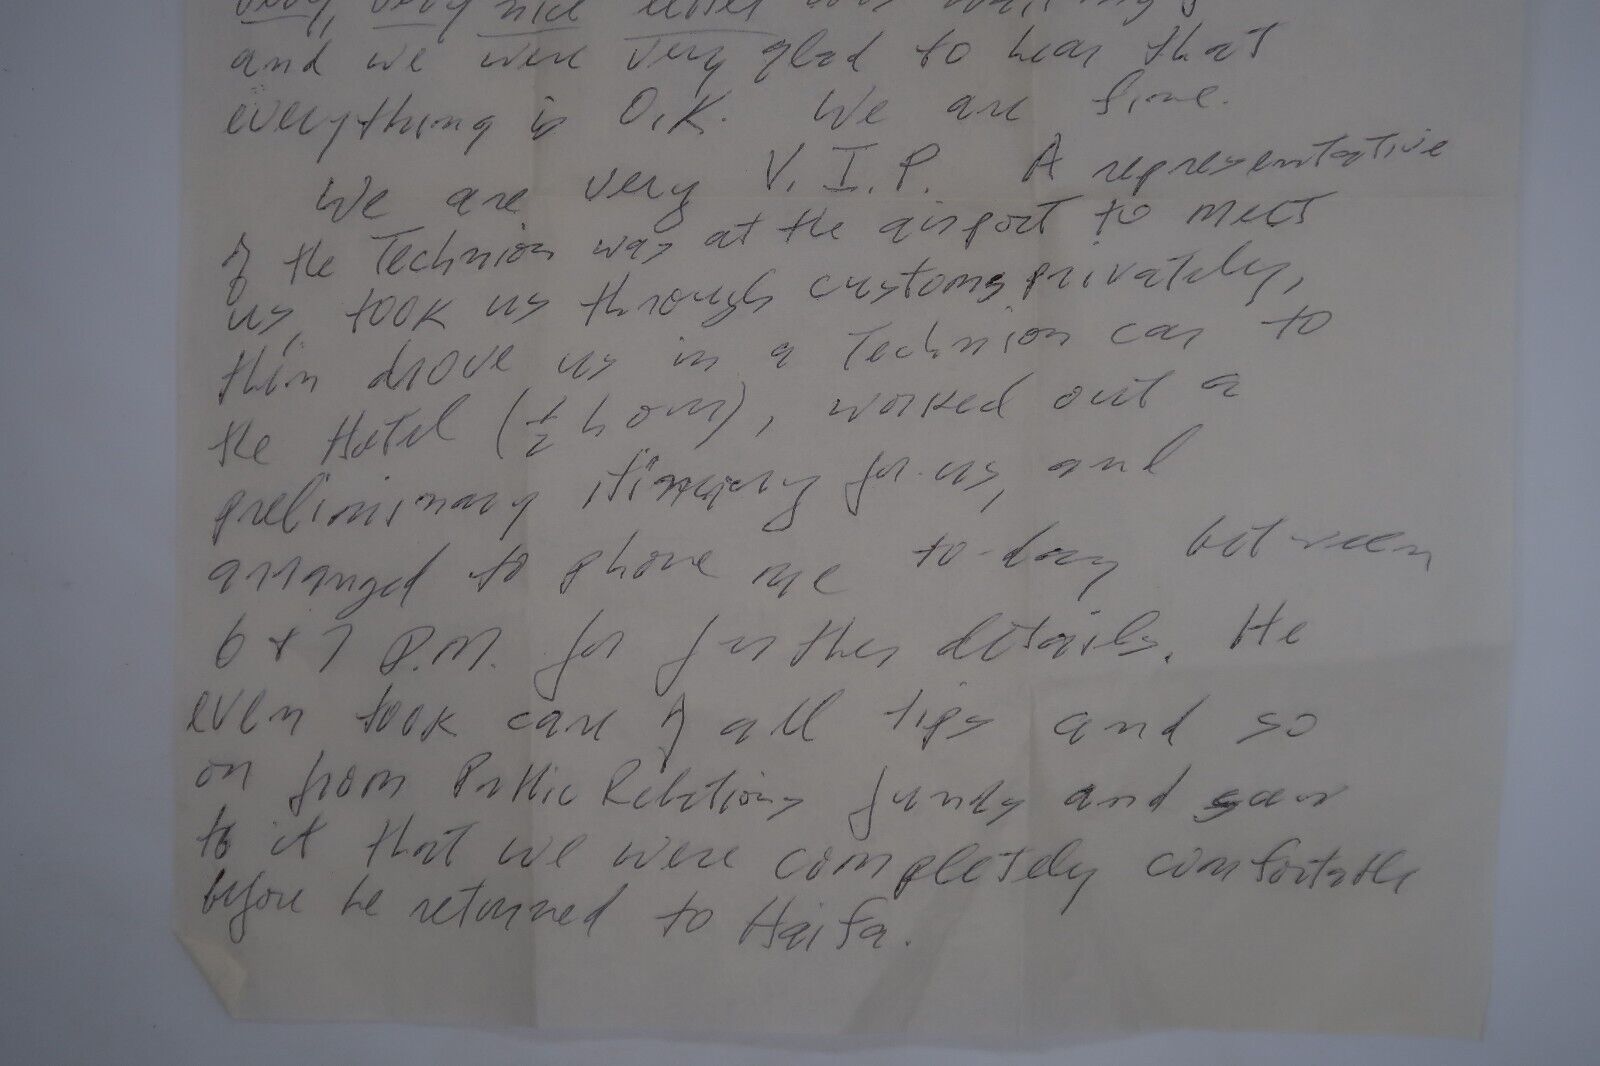 very, very nice letter was waiting
and we were very glad to hear that
everything is O.K. We are fine.
We are very V.I.P. A representative
of the Technion was at the airport to meet
us, took us through customs privately,
then drove us in a Technion car to
the Hotel (½ hour), worked out a
preliminary itinerary for us, and
arranged to phone me to-day between
6 & 7 P.M. for further details. He
even took care of all tips and so
on from Public Relations funds and saw
to it that we were completely comfortable
before he returned to Haifa.